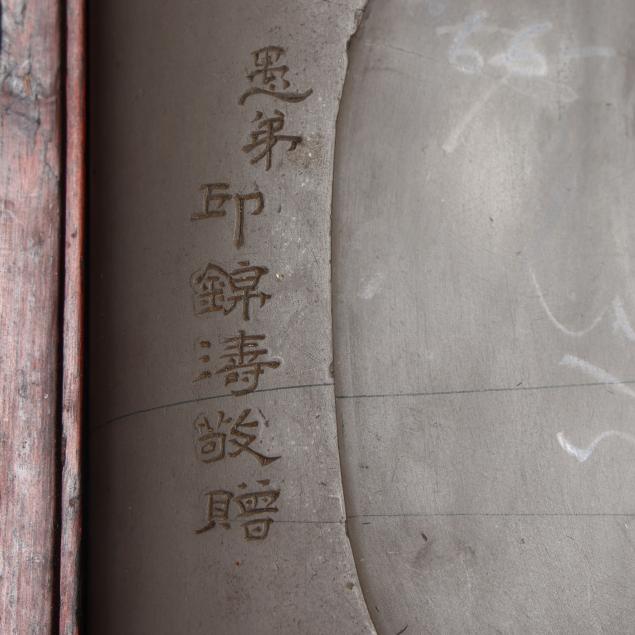 愚弟
印錦濤敬贈